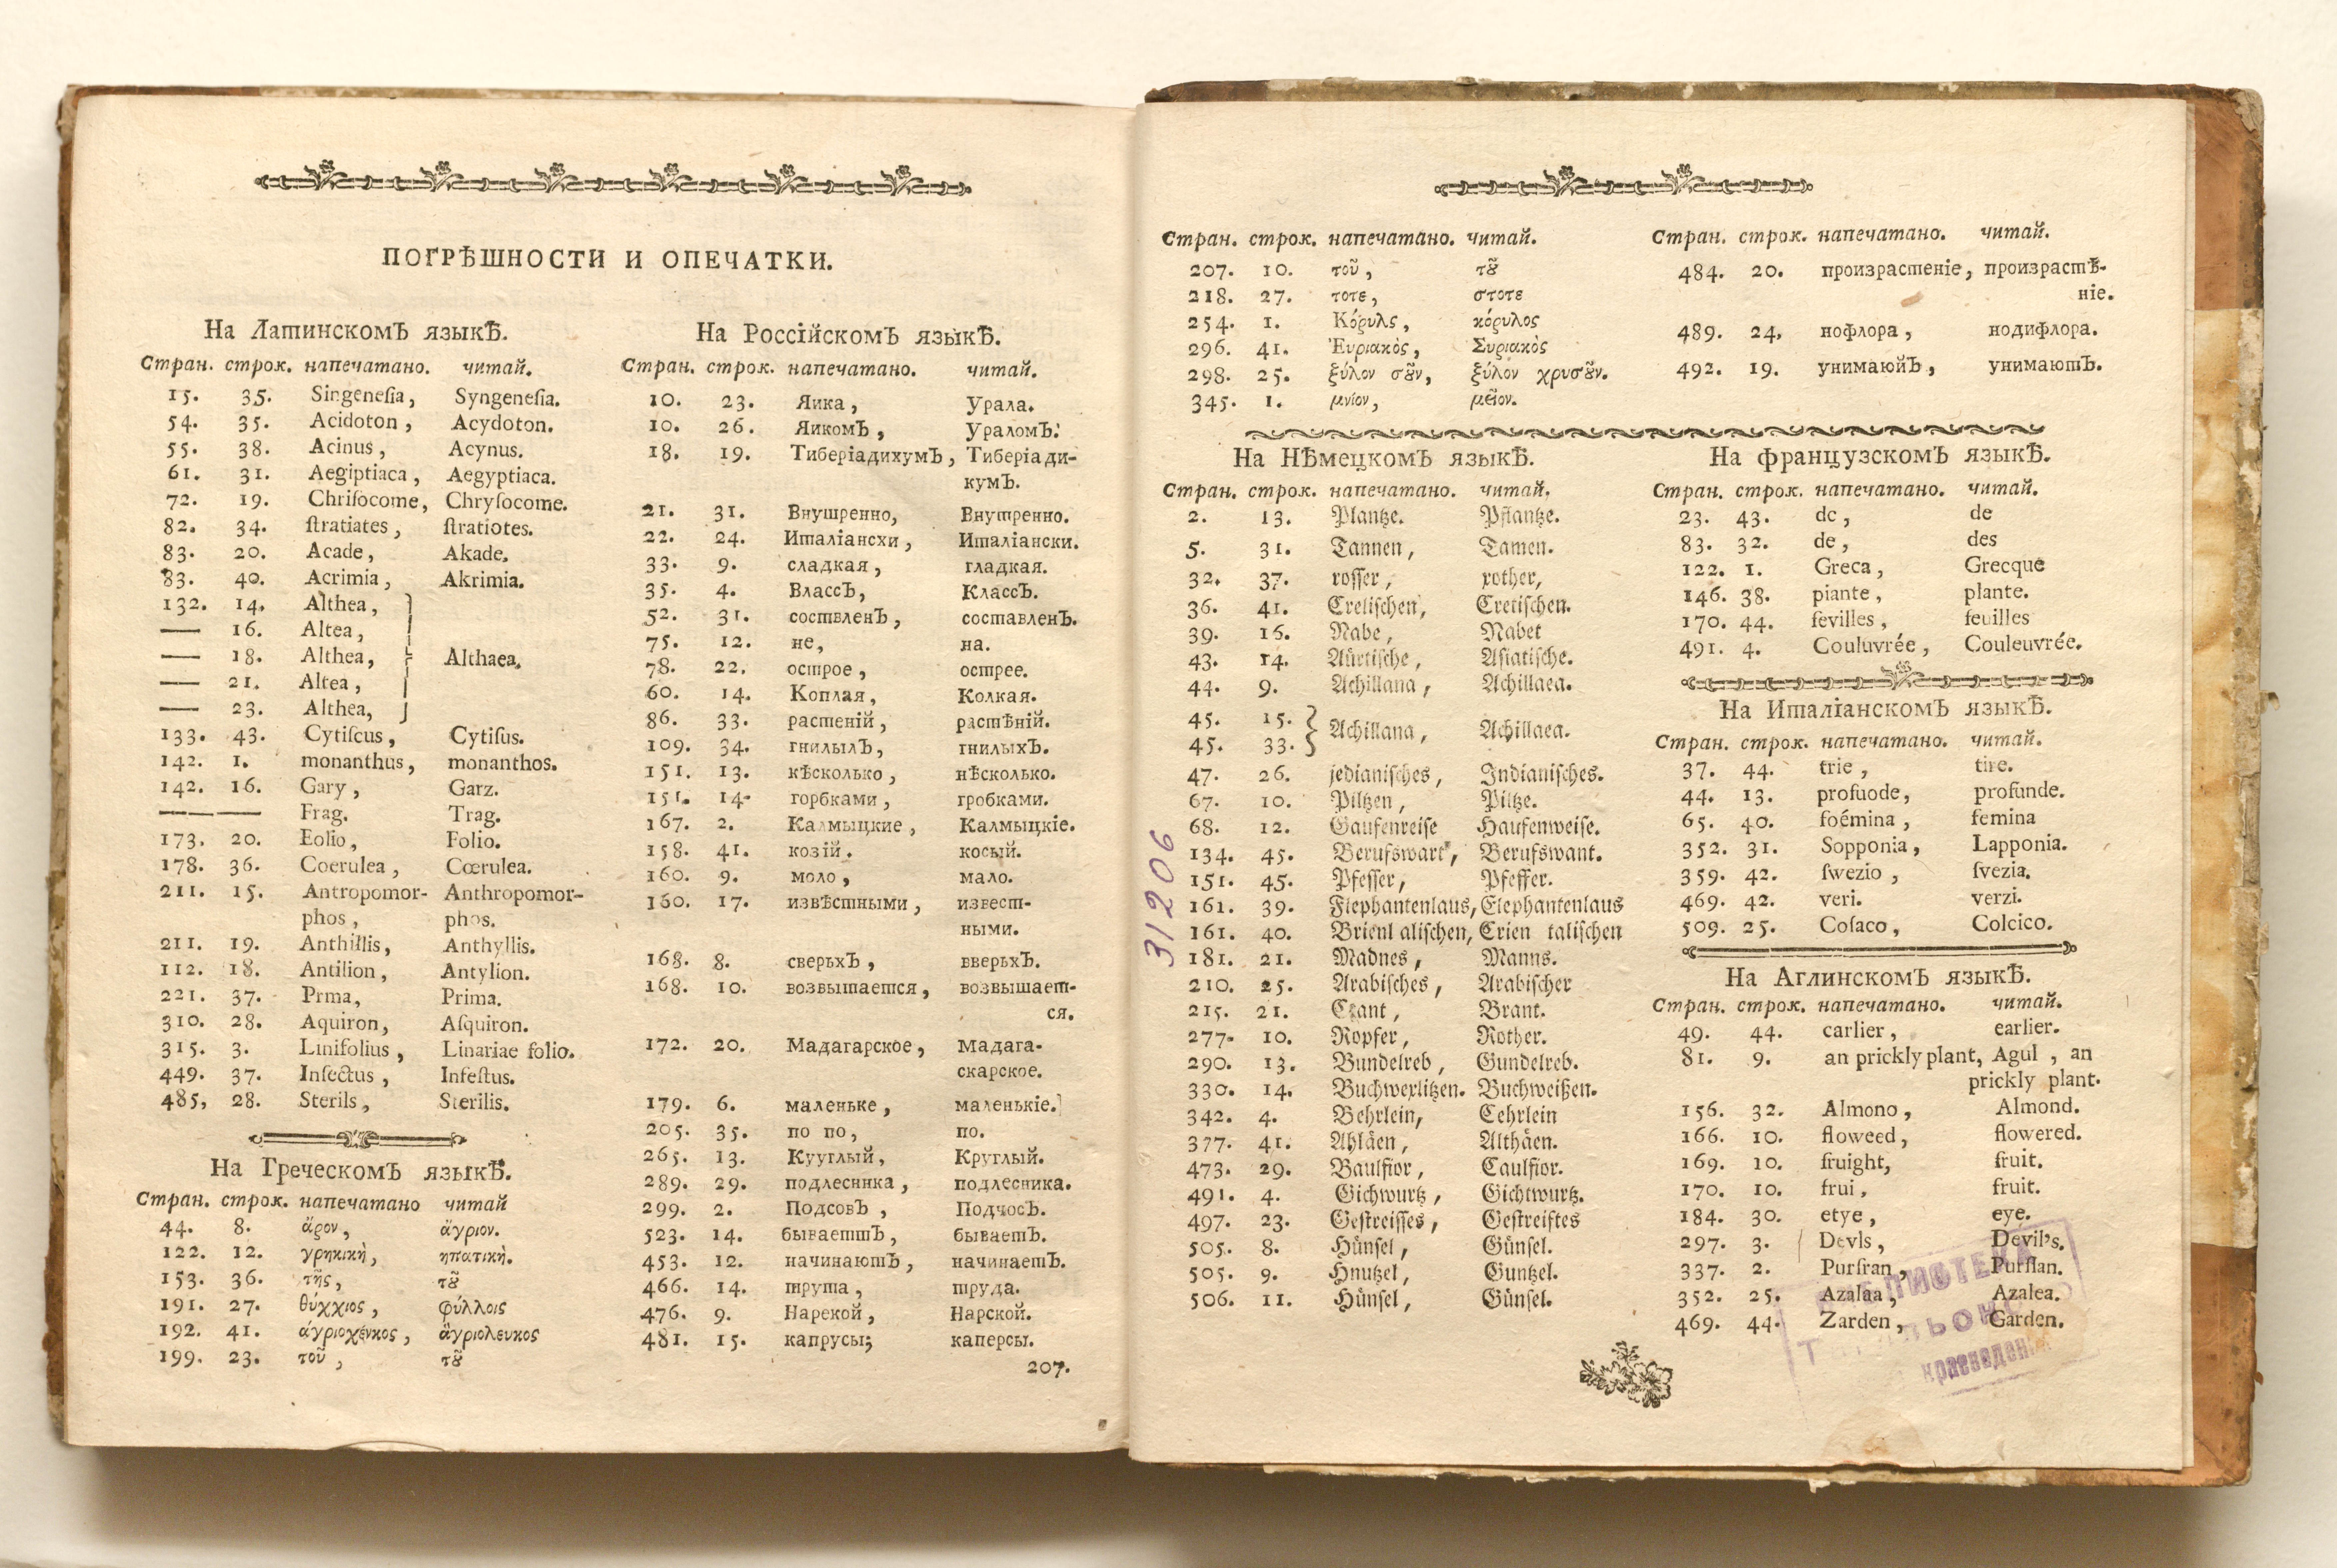 ПОГРѢШНОСТИ И ОПЕЧАТКИ.
На Латинскомъ языкѣ.
Стран. строк. напечатано. читай.
15. 35. Singeneſia, Syngeneſia.
54. 35. Acidoton, Acydoton.
55. 38. Acinus, Acynus.
61. 31. Aegiptiaca, Aegyptiaca.
72. 19. Chriſocome, Chryſocome.
82. 34. ſtratiates, ſtratiotes.
83. 20. Acade, Akade.
83. 40. Acrimia, Akrimia.
132. 14. Althea,
— 16. Altea,
— 18. Althea, Althaea.
— 21. Altea,
— 23. Althea,
133. 43. Cytiſcus, Cytiſus.
142. 1. monanthus, monanthos.
142. 16. Gary, Garz.
— — Frag. Trag.
173. 20. Eolio, Folio.
178. 36. Coerulea, Cœrulea.
211. 15. Antropomor- Anthropomor-
phos, phos.
211. 19. Anthillis, Anthyllis.
112. 18. Antilion, Antylion.
221. 37. Prma, Prima.
310. 28. Aquiron, Aſquiron.
315. 3. Linifolius, Linariae folio.
449. 37. Inſectus, Infeſtus.
485, 28. Sterils, Sterilis.
На Греческомъ языкѣ.
Стран. строк. напечатано читай
44. 8. ἄρον, ἄγριον.
122. 12. γρηκικὴ, ηπατικὴ.
153. 36. τῆς, τȣ͂
191. 27. θύχχιος, φύλλοις
192. 41. ἀγριοχένκος, ἀγριολευκος
199. 23. τοῦ, τȣ͂
На Россійскомъ языкѣ.
Стран. строк. напечатано. читай.
10. 23. Яика, Урала.
10. 26. Яикомъ, Ураломъ.
18. 19. Тиберіадихумъ, Тиберіади-
кумъ.
21. 31. Внушренно, Внутренно.
22. 24. Италіансхи, Италіански.
33. 9. сладкая, гладкая.
35. 4. Влассъ, Классъ.
52. 31. соствленъ, составленъ.
75. 12. не, на.
78. 22. острое, острее.
60. 14. Коплая, Колкая.
86. 33. растеній, растѣній.
109. 34. гнилылъ, гнилыхъ.
151. 13. кѣсколько, нѣсколько.
151. 14. горбками, гробками.
167. 2. Калмыцкие, Калмыцкіе.
158. 41. козій. косый.
160. 9. моло, мало.
160. 17. извѣстными, извест-
ными.
168. 8. сверьхъ, вверьхъ.
168. 10. возвытается, возвышает-
ся.
172. 20. Мадагарское, Мадага-
скарское.
179. 6. маленьке, маленькіе.
205. 35. по по, по.
265. 13. Кууглый, Круглый.
289. 29. подлесника, подлесника.
299. 2. Подсовъ, Подчосъ.
523. 14. бываеттъ, бываетъ.
453. 12. начинаютъ, начинаетъ.
466. 14. трута, труда.
476. 9. Нарекой, Нарской.
481. 15. капрусы; каперсы.
207.
Стран. строк. напечатано. читай.
207. 10. τοῦ, τȣ͂
218. 27. τοτε, στοτε
254. 1. Κόρυλς, κόρυλος
296. 41. Ἐυριακὸς, Συριακὸς
298. 25. ξύλον σȣ͂ν, ξύλον χρυσȣ͂ν.
345. 1. μνίον, μεῖον.
Стран. строк. напечатано. читай.
484. 20. произрастеніе, произрастѣ-
ніе.
489. 24, нофлора, нодифлора.
492. 19. унимаюйъ, унимаютъ.
На Нѣмецкомъ языкѣ.
Стран. строк. напечатано. читай.
2. 13. Plantze. Pflantze.
5. 31. Tannen, Tamen.
32. 37. roſſer, rother,
36. 41. Creliſchen, Cretiſchen.
39. 16. Nabe, Nabet
43. 14. Aürtiſche, Aſiatiſche.
44. 9. Achillana, Achillaea.
45. 15.
Achillana, Achillaea.
45. 33.
47. 26. jedianiſches, Indianiſches.
67. 10. Piltzen, Piltze.
68. 12. Gaufenreiſe Haufenweiſe.
134. 45. Berufswart, Berufswant.
151. 45. Pfeſſer, Pfeffer.
161. 39. Flephantenlaus, Elephantenlaus
161. 40. Brienl aliſchen, Crien taliſchen
181. 21. Madnes, Manns.
210. 25. Arabiſches, Arabiſcher
215. 21. Crant, Brant.
277. 10. Ropfer, Rother.
290. 13. Bundelreb, Gundelreb.
330. 14. Buchwerlitzen. Buchweißen.
342. 4. Behrlein, Cehrlein
377. 41. Ahläen, Althäen.
473. 29. Baulfior, Caulfior.
491. 4. Gichwurtz, Gichtwurtz.
497. 23. Geſtreiſſes, Geſtreiftes
505. 8. Hünſel, Günſel.
505. 9. Hnutzel, Guntzel.
506. 11. Hünſel, Günſel.
На Французскомъ языкѣ.
Стран. строк. напечатано. читай.
23. 43. dc, de
83. 32. de, des
122. 1. Greca, Grecque
146. 38. piante, plante.
170. 44. fevilles, feuilles
491. 4. Couluvrée, Couleuvrée.
На Италіанскомъ языкѣ.
Стран. строк. напечатано. читай.
37. 44. trie, tire.
44. 13. profuode, profunde.
65. 40. foémina, femina
352. 31. Sopponia, Lapponia.
359. 42. ſwezio, ſvezia.
469. 42. veri. verzi.
509. 25. Coſaco, Colcico.
На Аглинскомъ языкѣ.
Стран. строк. напечатано. читай.
49. 44. carlier, earlier.
81. 9. an prickly plant, Agul, an
prickly plant.
156. 32. Almono, Almond.
166. 10. floweed, flowered.
169. 10. fruight, fruit.
170. 10. frui, fruit.
184. 30. etye, eye.
297. 3. Devls, Devil's.
337. 2. Purſran, Purſlan.
352. 25. Azalaa, Azalea.
469. 44. Zarden, Garden.
31206